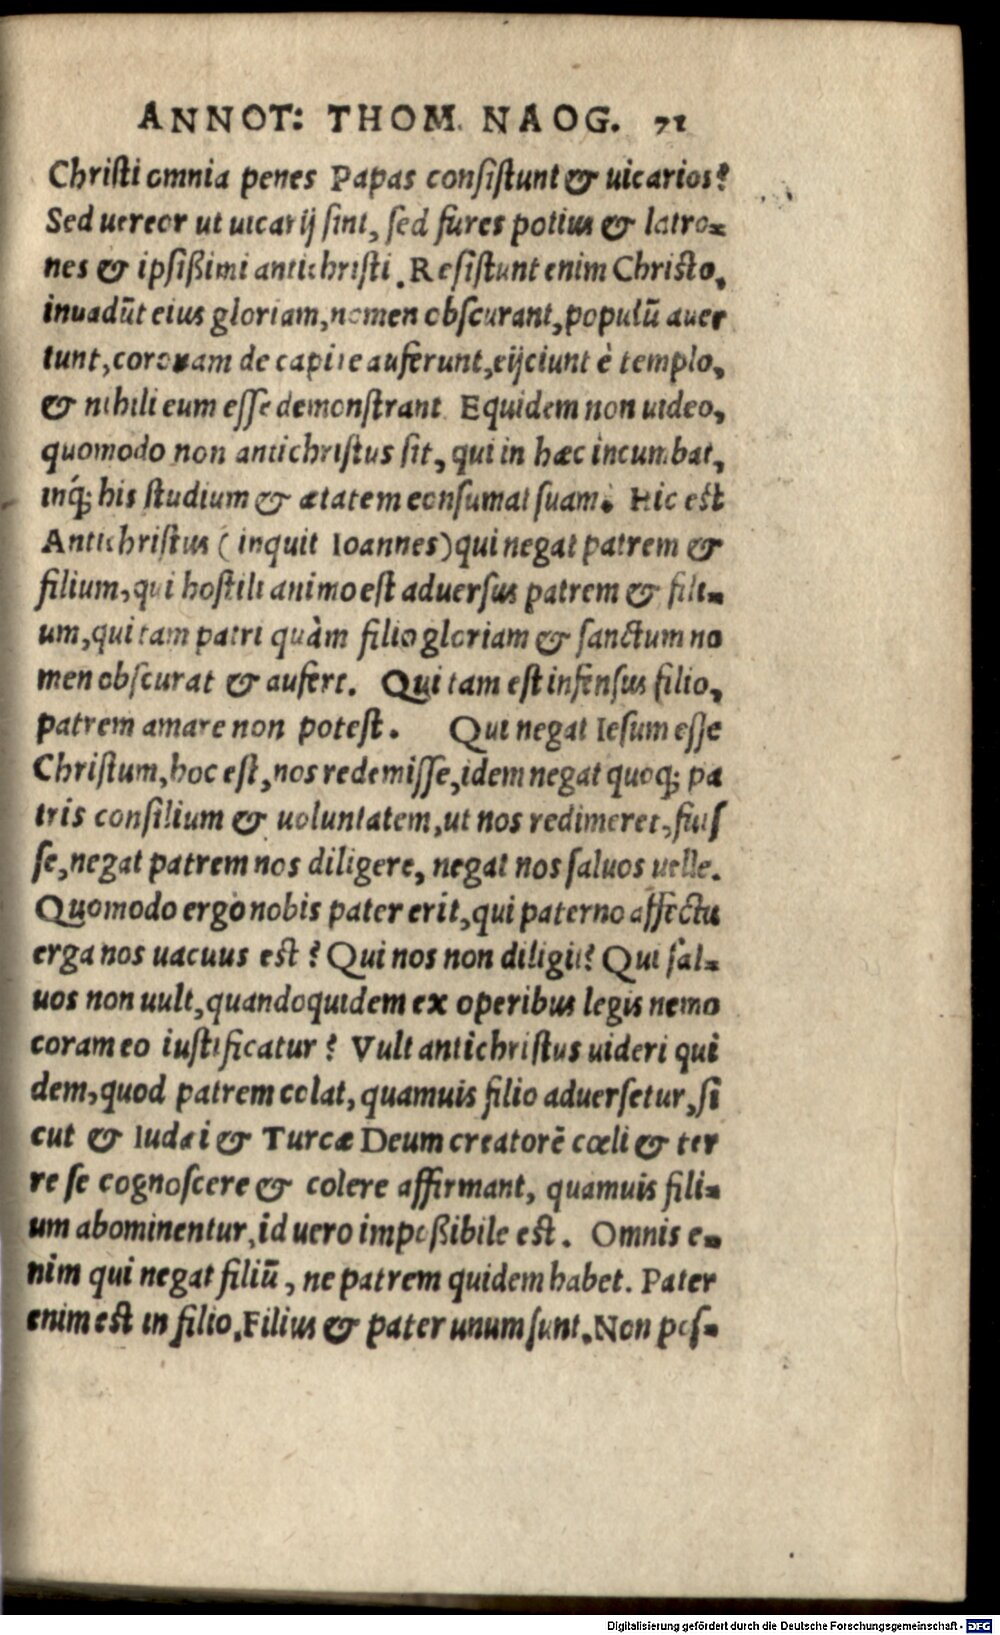 ANNOT: THOM. NAOG. 71
Christi omnia penes Papas consistunt & uicarios?
Sed uereor ut uicarij sint, sed fures potius & latro-
nes & ipsißimi antichristi. Resistunt enim Christo,
inuadūt eius gloriam, nomen obscurant, populū auer
tunt, coronam de capite auferunt, eijciunt è templo,
& nihili eum esse demonstrant. Equidem non uideo,
quomodo non antichristus sit, qui in hæc incumbat,
inq́; his studium & ætatem consumat suam. Hic est
Antichristus (inquit Ioannes) qui negat patrem &
filium, qui hostili animo est aduersus patrem & fili-
um, qui tam patri quàm filio gloriam & sanctum no
men obscurat & aufert. Qui tam est infensus filio,
patrem amare non potest. Qui negat Iesum esse
Christum, hoc est, nos redemisse, idem negat quoq; pa
tris consilium & uoluntatem, ut nos redimeret, fuis
se, negat patrem nos diligere, negat nos saluos uelle.
Quomodo ergo nobis pater erit, qui paterno affectu
erga nos uacuus est? Qui nos non diligit? Qui sal-
uos non uult, quandoquidem ex operibus legis nemo
coram eo iustificatur? Vult antichristus uideri qui
dem, quod patrem colat, quamuis filio aduersetur, si
cut & Iudæi & Turcæ Deum creatorē cœli & ter
re se cognoscere & colere affirmant, quamuis fili-
um abominentur, id uero impoßibile est. Omnis e-
nim qui negat filiū, ne patrem quidem habet. Pater
enim est in filio. Filius & pater unum sunt. Non pos-
Digitalisierung gefördert durch die Deutsche Forschungsgemeinschaft - DFG